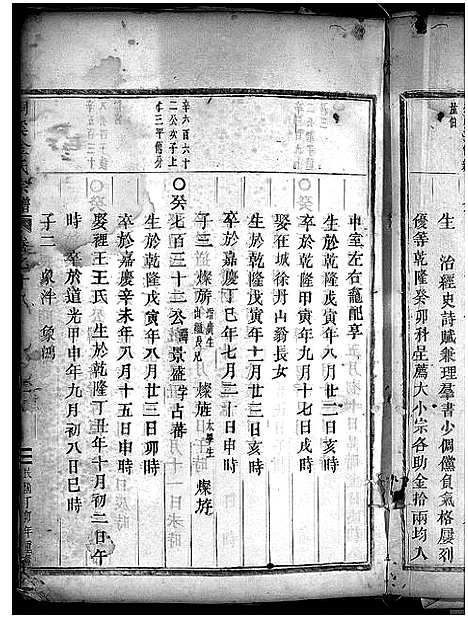 生 治經史詩賦兼理羣書少倜儻負氣格屢列
優等乾隆癸卯科呈薦大小宗各助金拾兩均入
中室左右龕配享
生於乾隆戊寅年八月廿二日亥時
卒於乾隆甲寅年九月十七日戌時
娶在城徐丹山翁長女
生於乾隆戊寅年十一月廿三日亥時
卒於嘉慶丁巳年七月二十日申時
子三 燦旂 燦旌 太學生 燦旃
辛六百六十
二公次子上
〇癸七百三十三公 諱景盛字古蕃
生於乾隆戊寅年八月廿三日卯時
卒於嘉慶辛未年八月十五日申時
娶裡王王氏 生於乾隆丁丑年十月初二日午
時 卒於道光甲申年九月初八日巳時
子二 象泮 象鴻